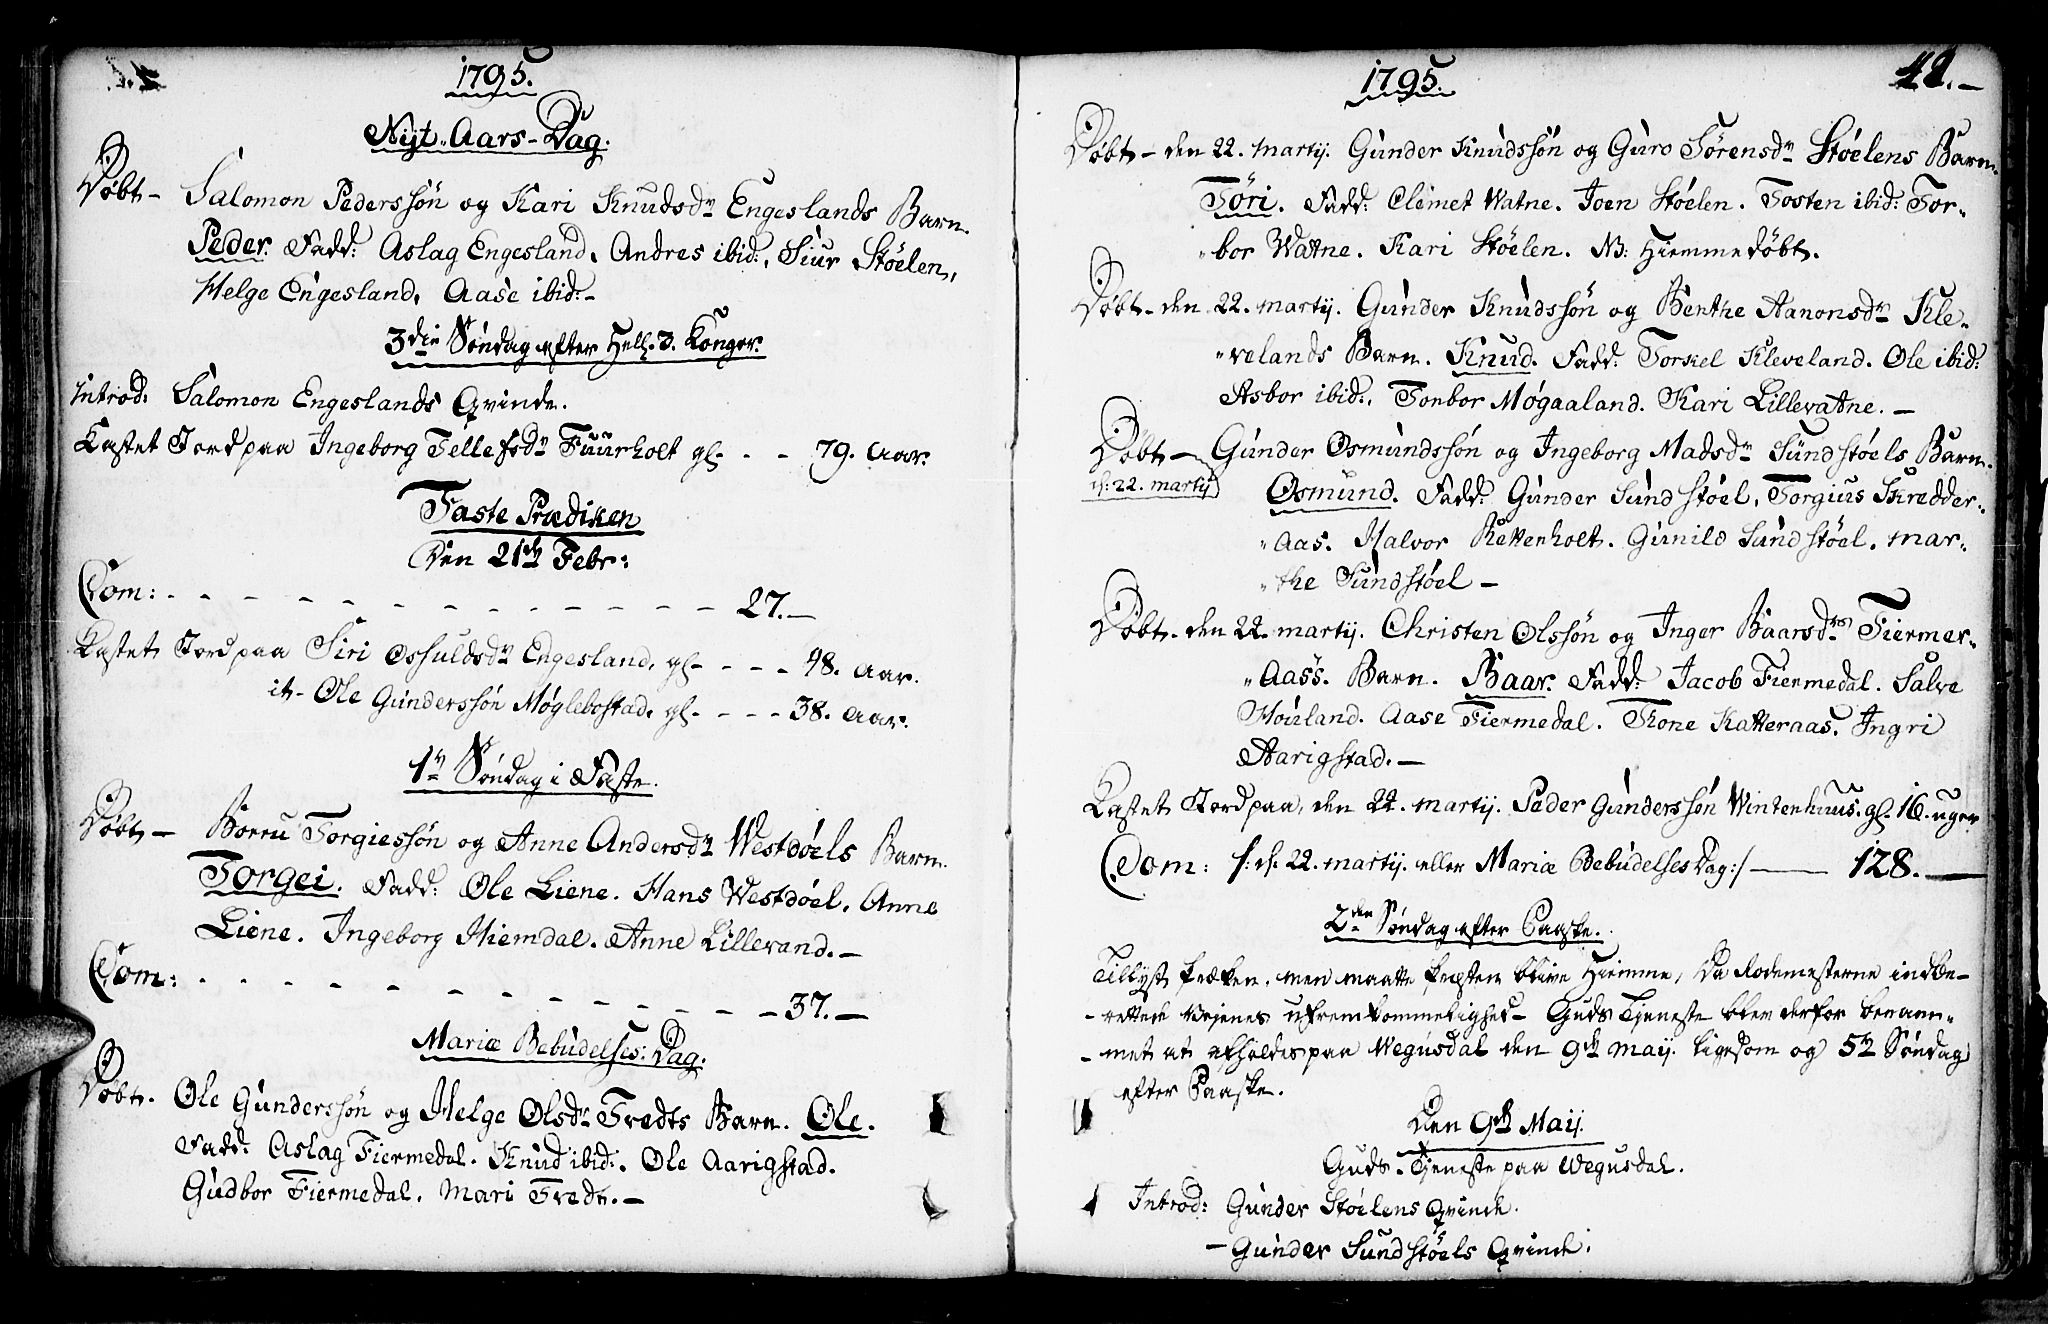 1795.
Nyt-Aars-Dag.
Døbt – Salomon Pederssøn og Kari Knudsdr Engeslands Barn.
Peder. Fadd: Aslag Engesland. Andres ibid:, Siur Støelen,
Helge Engesland, Aase ibid: –
3die Søndag efter Hell. 3. Konger.
Introd: Salomon Engeslands Qvinde.
Kastet Jord paa Ingeborg Tellefsdr Fuurholt gl. - - - 79. Aar.
Faste Prædiken
Den 21de Febr:
Com: - - - - - - - - - - - - - 27. –
Kastet Jord paa Siri Osfuldsdr Engesland, gl. - - - - 48. Aar.
it- Ole Gunderssøn Møglebostad, gl. - - - - 38. Aar.
1ste Søndag i Faste.
Døbt – Borru Torgiessøn og Anne Andersdr Westdøels Barn.
Torgei. Fadd: Ole Liene. Hans Westdøel. Anne
Liene. Ingeborg Hiemdal. Anne Lillevand. –
Com: - - - - - - - - - - - - - 37. –
Mariæ Bebudelses: Dag.
Døbt. Ole Gunderssøn og Helge Olsdr Tredts Barn. Ole.
Fadd: Aslag Fiermedal. Knud ibid:. Ole Aarigstad.
Gudbor Fiermedal. Mari Tredt. –
1795.
42. –
Døbt – den 22. Martij. Gunder Knudssøn og Guro Sørensdr Støelens Barn.
Töri. Fadd: Clemet Watne. Joen Støelen. Tosten ibid: Tor-
bor Watne. Kari Støelen. NB: Hiemmedøbt.
Døbt – den 22. Martij. Gunder Knudssøn og Benthe Aanonsdr Kle-
velands Barn. Knud. Fadd: Torkel Kleveland. Ole ibid:
Asbor ibid:. Tonbor Møgaaland. Kari Lillevatne. –
Døbt – Gunder Osmundssøn og Ingeborg Madsdr Sundstøels Barn.
d: 22. Martij
Osmund. Fadd: Gunder Sundstøel, Torgius Skredder-
aas. Halvor Rettenholt. Gunild Sundstøel. Mar-
the Sundstøel –
Døbt – den 22. Martij. Christen Olssøn og Inger Baarsdr Fiermer-
Aass. Barn. Baar. Fadd: Jacob Fiermedal. Salve
Houland. Aase Fiermedal. Tone Katteraas. Ingri
Aarigstad. –
Kastet Jord paa, den 22. Martij. Peder Gunderssøn Winterhuus. gl. 16. uger
Com: /: d. 22. Martij. eller Mariæ Bebudelses Dag :/ — 128. —
2den Søndag efter Paaske.
Tillyst Præken, men maatte Præsten blive Hiemme, Da Rodemesterne indbe-
rettede Vejenes ufremkommelighed – Guds Tjeneste blev derfor beram-
met at afholdes paa Wegusdal den 9de Maij. ligesom og 5te Søndag
efter Paaske.
Den 9de Maij.
Guds-Tjeneste paa Wegusdal.
Introd: Gunder Støelens Qvinde.
– Gunder Sundstøels Qvinde.